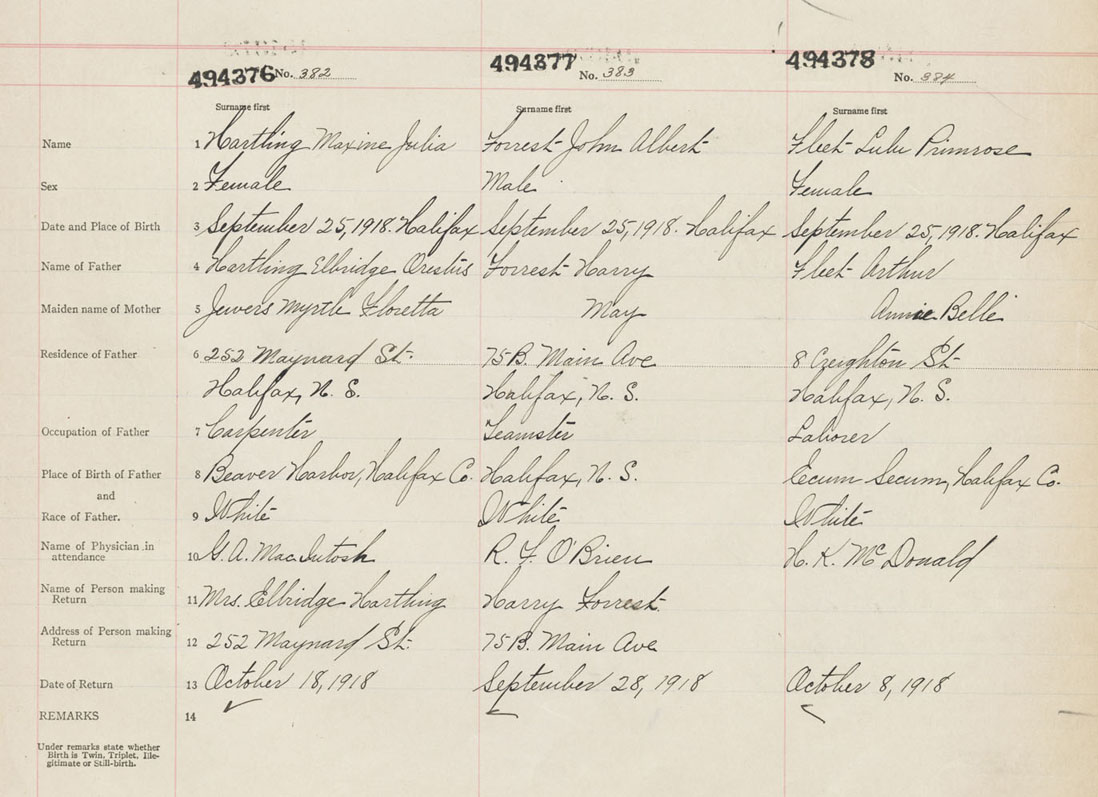 494376 No. 382 494377 No. 383 494378 No. 384
Surname first Surname first Surname first
Name 1 Hartling Maxine Julia Forrest John Albert Fleet Lulu Primrose
Sex 2 Female Male Female
Date and Place of Birth 3 September 25, 1918. Halifax September 25, 1918. Halifax September 25, 1918. Halifax
Name of Father 4 Hartling Elbridge Orestus Forrest Harry Fleet Arthur
Maiden name of Mother 5 Jewers Myrtle Floretta May Annie Belle
Residence of Father 6 252 Maynard St. 75B. Main Ave 8 Creighton St.
Halifax, N. S. Halifax, N. S. Halifax, N. S.
Occupation of Father 7 Carpenter Teamster Laborer
Place of Birth of Father 8 Beaver Harbor, Halifax Co. Halifax, N. S. Ecum Secum, Halifax Co.
and
Race of Father. 9 White White White
Name of Physician in
attendance 10 G. A. MacIntosh R. F. O'Brien H. K. McDonald
Name of Person making
Return 11 Mrs. Elbridge Hartling Harry Forrest
Address of Person making
Return 12 252 Maynard St. 75B. Main Ave
Date of Return 13 October 18, 1918 September 28, 1918 October 8, 1918
REMARKS 14
Under remarks state whether
Birth is Twin, Triplet, Ille-
gitimate or Still-birth.